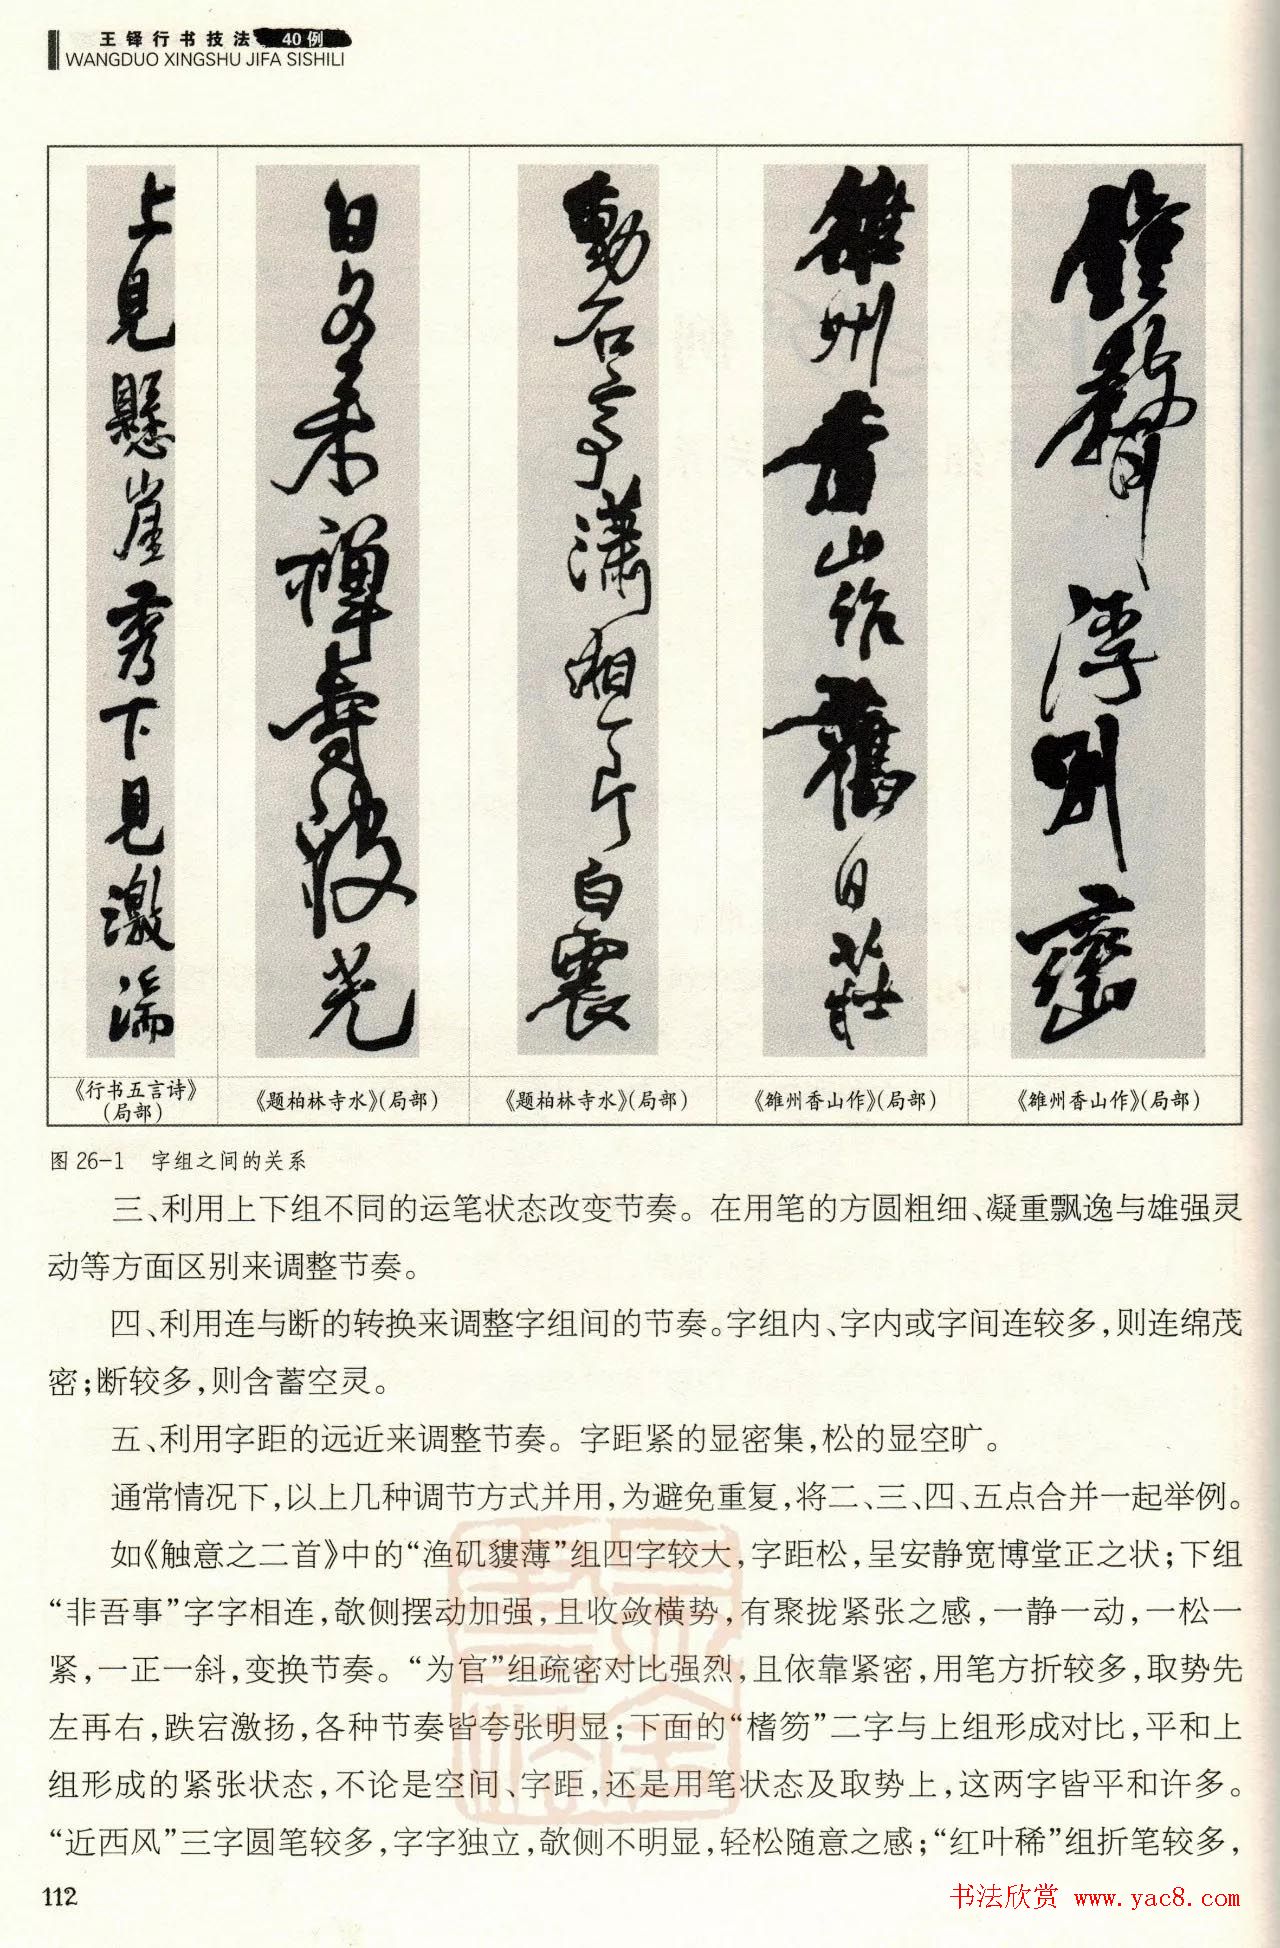 王铎行书技法 40例
WANGDUO XINGSHU JIFA SISHILI
上見懸崖秀下見激湍
日名来禅寿波光
動石亭瀟湘一片白震
雒州香山作舊日莊
鐘聲浮别巒
《行书五言诗》
(局部)
《题柏林寺水》(局部)
《题柏林寺水》(局部)
《雒州香山作》(局部)
《雒州香山作》(局部)
图 26-1 字组之间的关系
三、利用上下组不同的运笔状态改变节奏。在用笔的方圆粗细、凝重飘逸与雄强灵
动等方面区别来调整节奏。
四、利用连与断的转换来调整字组间的节奏。字组内、字内或字间连较多,则连绵茂
密;断较多,则含蓄空灵。
五、利用字距的远近来调整节奏。字距紧的显密集,松的显空旷。
通常情况下,以上几种调节方式并用,为避免重复,将二、三、四、五点合并一起举例。
如《触意之二首》中的“渔矶貗薄”组四字较大,字距松,呈安静宽博堂正之状;下组
“非吾事”字字相连,欹侧摆动加强,且收敛横势,有聚拢紧张之感,一静一动,一松一
紧,一正一斜,变换节奏。“为官”组疏密对比强烈,且依靠紧密,用笔方折较多,取势先
左再右,跌宕激扬,各种节奏皆夸张明显;下面的“楮笏”二字与上组形成对比,平和上
组形成的紧张状态,不论是空间、字距,还是用笔状态及取势上,这两字皆平和许多。
“近西风”三字圆笔较多,字字独立,欹侧不明显,轻松随意之感;“红叶稀”组折笔较多,
112
书法欣赏 www.yac8.com